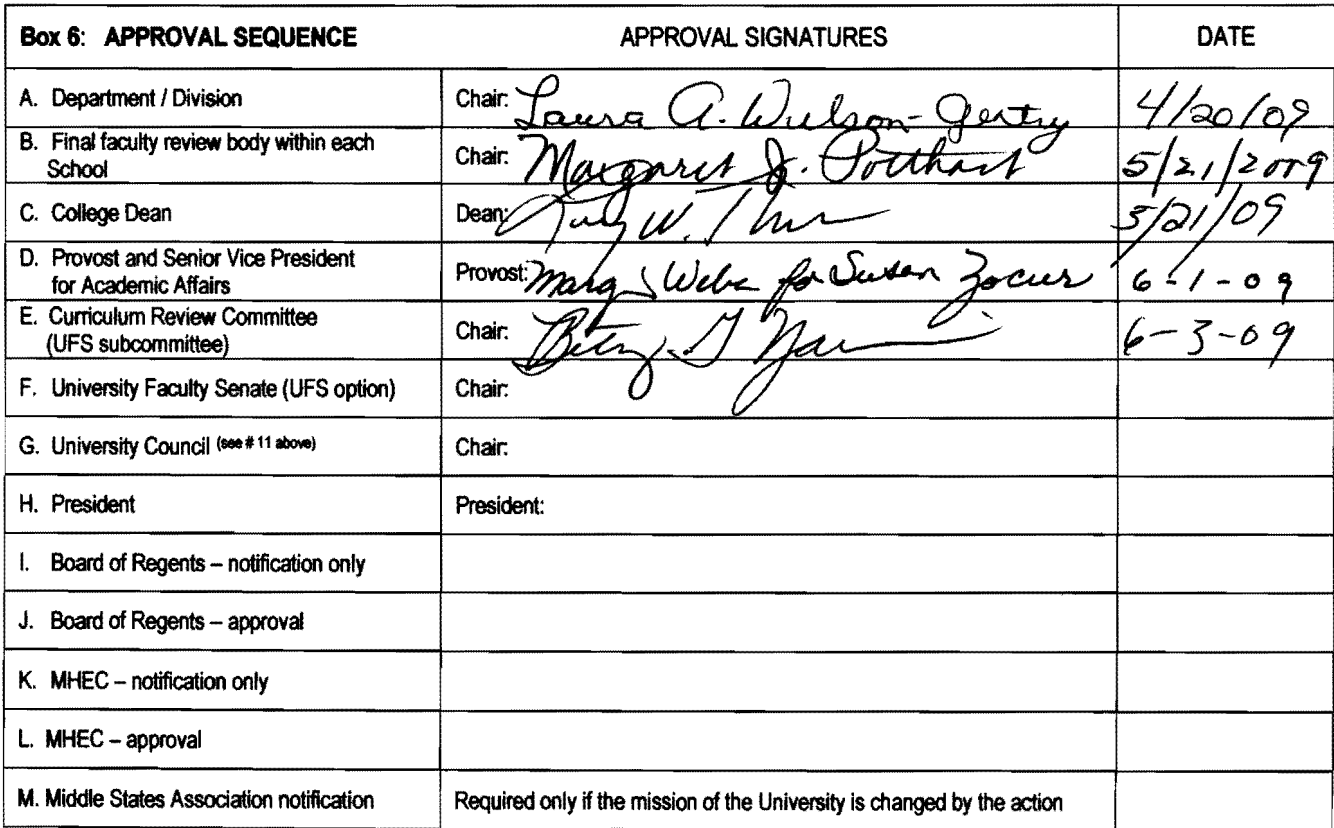 Box 6: APPROVAL SEQUENCE APPROVAL SIGNATURES DATE
A. Department / Division Chair: Laura A. Wilson-Gentry 4/20/09
B. Final faculty review body within each
School Chair: Margaret J. Potthast 5/21/2009
C. College Dean Dean: W. 5/21/09
D. Provost and Senior Vice President
for Academic Affairs Provost: for Susan Zacur 6-1-09
E. Curriculum Review Committee
(UFS subcommittee) Chair: 6-3-09
F. University Faculty Senate (UFS option) Chair:
G. University Council (see # 11 above) Chair:
H. President President:
I. Board of Regents – notification only
J. Board of Regents – approval
K. MHEC – notification only
L. MHEC – approval
M. Middle States Association notification Required only if the mission of the University is changed by the action